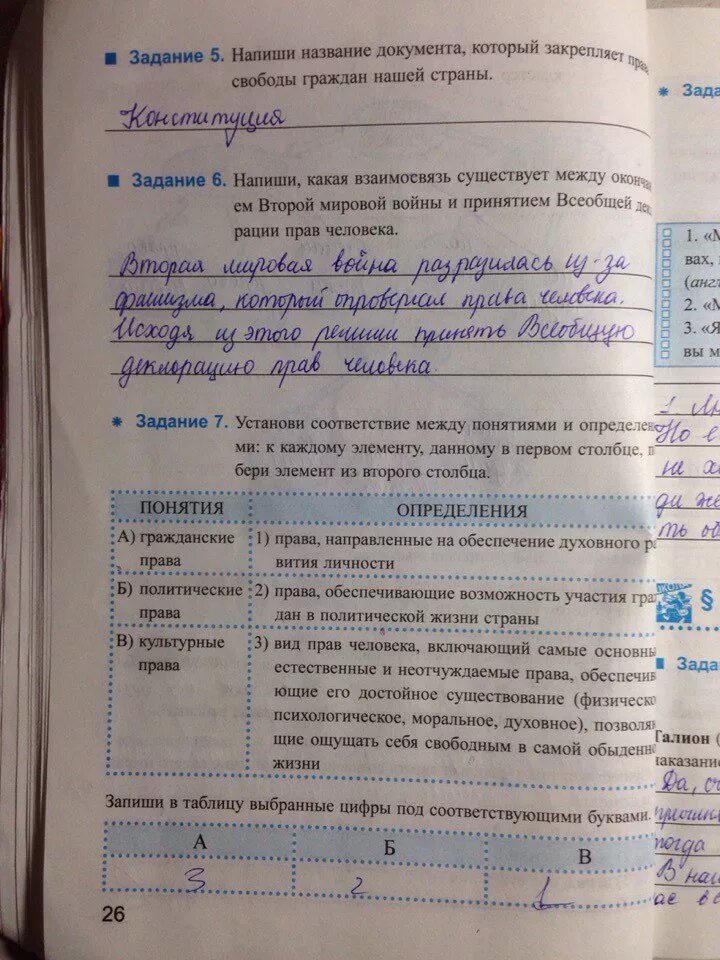 ■ Задание 5. Напиши название документа, который закрепляет права
свободы граждан нашей страны.
Конституция
■ Задание 6. Напиши, какая взаимосвязь существует между оконча
ем Второй мировой войны и принятием Всеобщей дек
рации прав человека.
Вторая мировая война разразилась из-за
фашизма, который опровергал права человека.
Исходя из этого решили принять Всеобщую
декларацию прав человека.
* Задание 7. Установи соответствие между понятиями и определен
ми: к каждому элементу, данному в первом столбце, п
бери элемент из второго столбца.
ПОНЯТИЯ ОПРЕДЕЛЕНИЯ
А) гражданские права
1) права, направленные на обеспечение духовного ра
вития личности
Б) политические права
2) права, обеспечивающие возможность участия граж
дан в политической жизни страны
В) культурные права
3) вид прав человека, включающий самые основны
естественные и неотчуждаемые права, обеспечив
ющие его достойное существование (физическо
психологическое, моральное, духовное), позволяю
щие ощущать себя свободным в самой обыденно
жизни
Запиши в таблицу выбранные цифры под соответствующими буквами.
А Б В
3 2 1
26
* Зада
1. «М
вах,
(англ
2. «М
3. «Я
вы м
1. Лю
Но в
не х
ди же
ть об
§
■ Зада
Галион (
наказание
Да, с
тогда
В наш
ас в